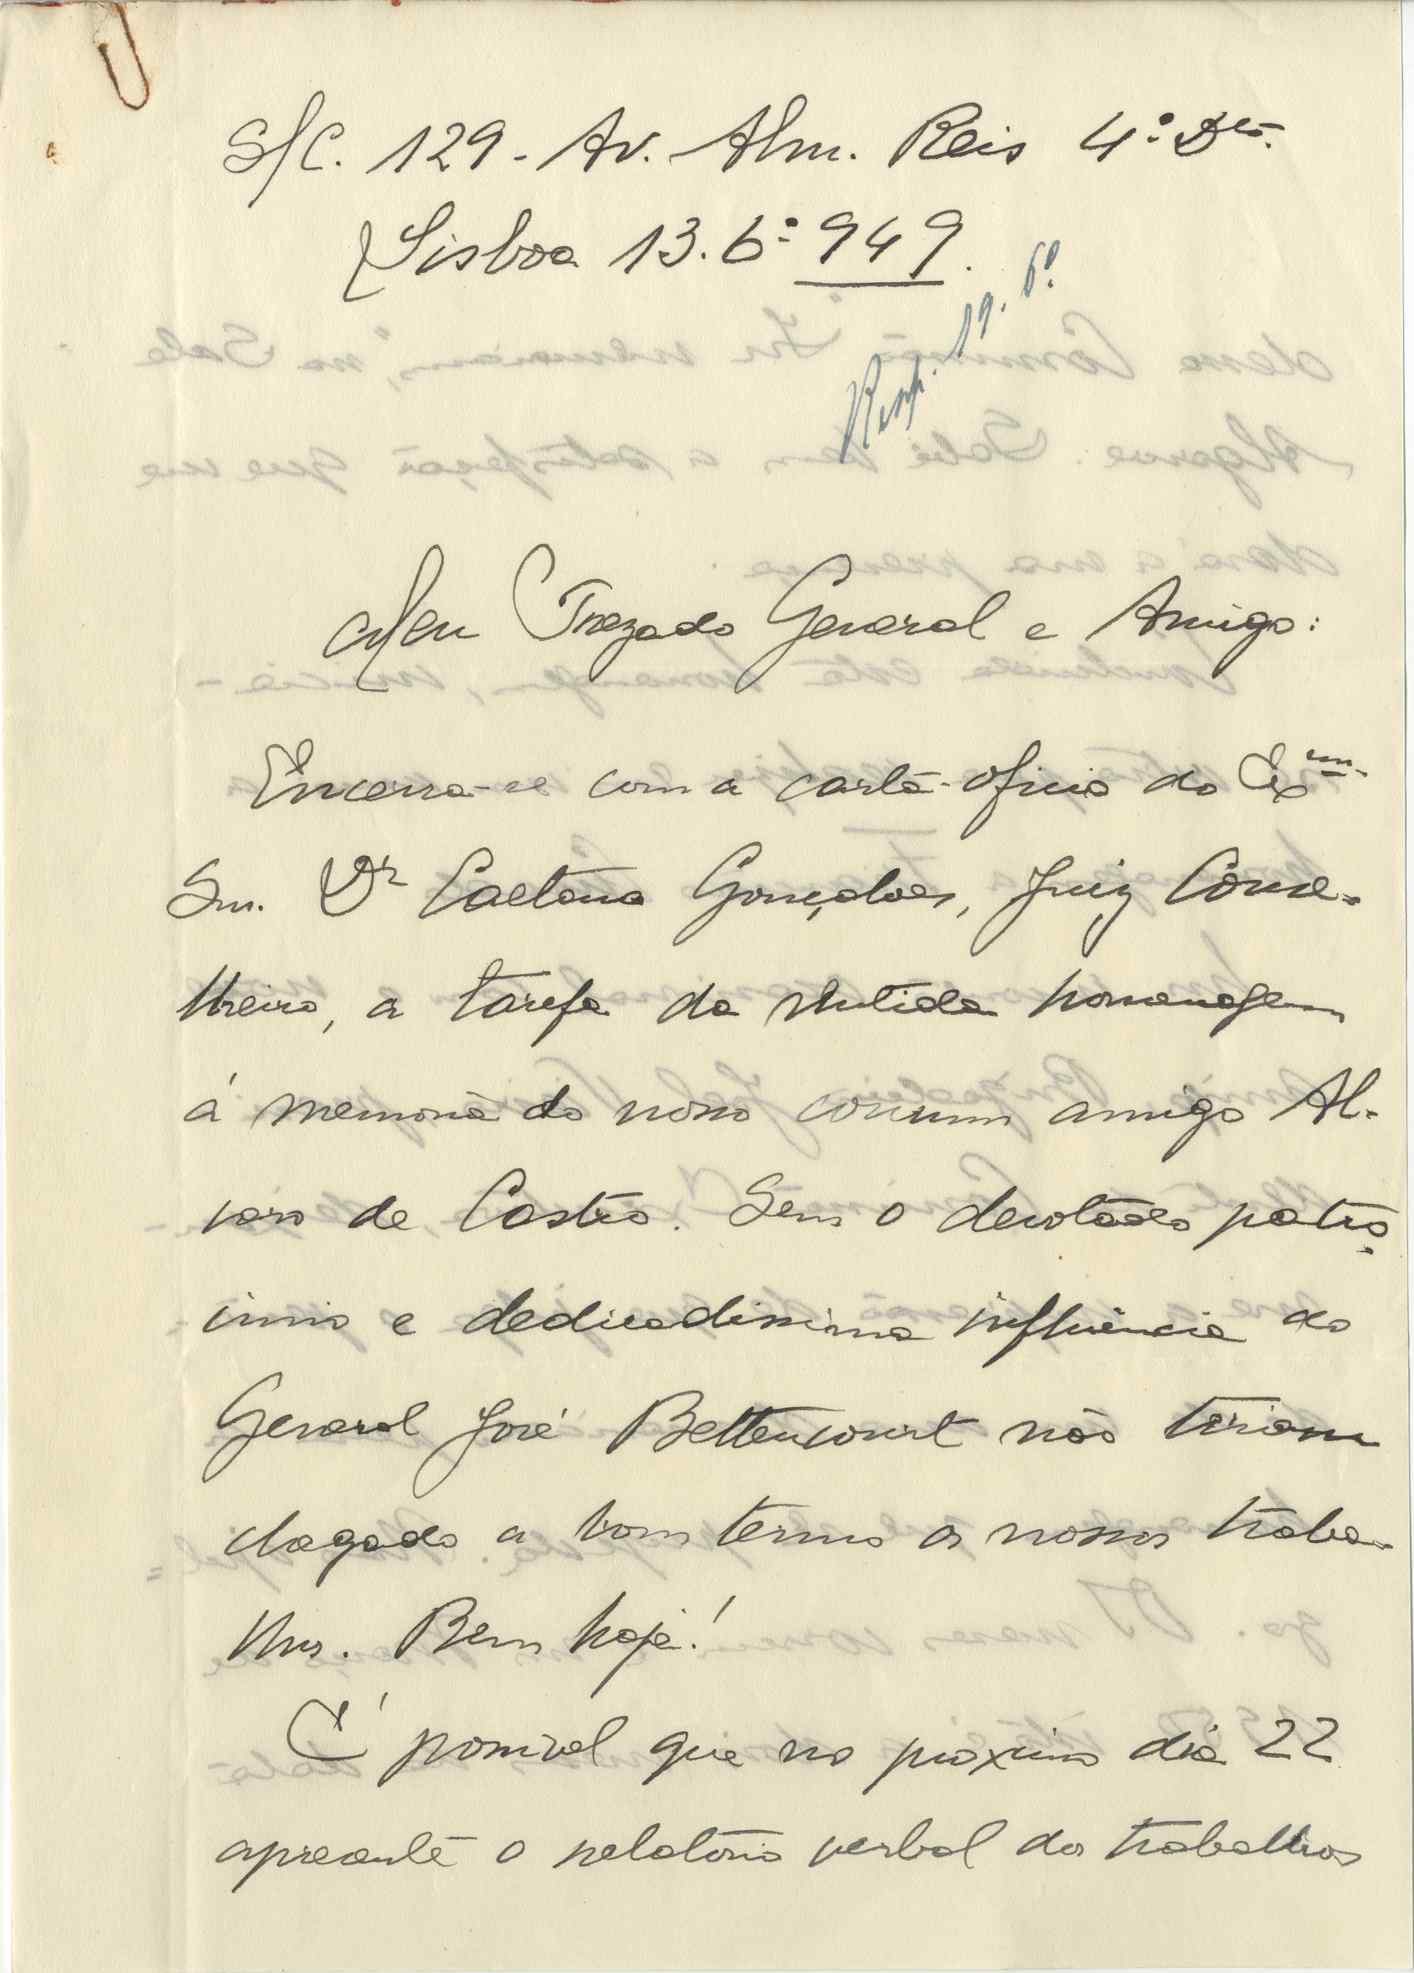 S/C. 129 - Av. Alm. Reis 4.º Dto.
Lisboa 13.6.º 949.
Resp. 19. 6.º
Meu Prezado General e Amigo:
Encerra-se com a carta-oficio do Exm.
Snr. Dr Caetano Gonçalves, Juiz Conse-
lheiro, a tarefa da sentida homenagem
á memoria do nosso comum amigo Al-
varo de Castro. Sem o devotado patro-
cinio e dedicadissima influência do
General José Bettencourt não teriam
chegado a bom termo os nossos traba-
lhos. Bem haja!
É possivel que no proximo dia 22
apresente o relatório verbal dos trabalhos